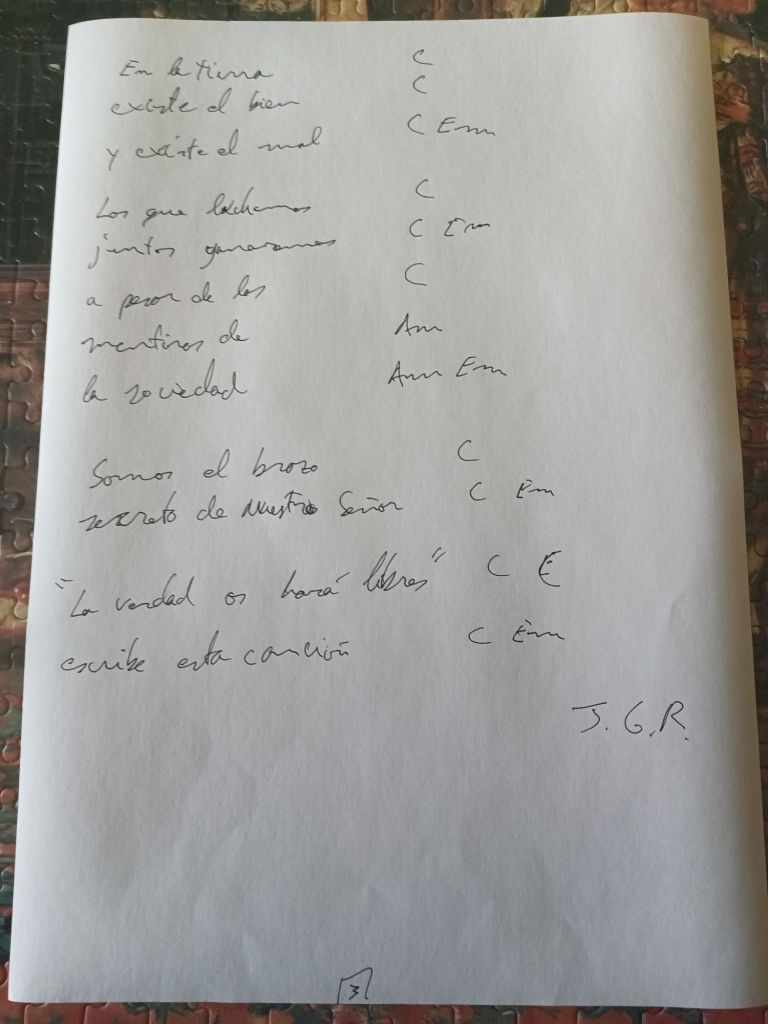 En la tierra C
existe el bien C
y existe el mal C Em
Los que luchamos C
juntos ganaremos C Em
a pesar de las C
mentiras de Am
la sociedad Am Em
Somos el brazo C
secreto de Nuestro Señor C Em
"La verdad os hará libres" C E
escribe esta canción C Em
J. G. R.
3